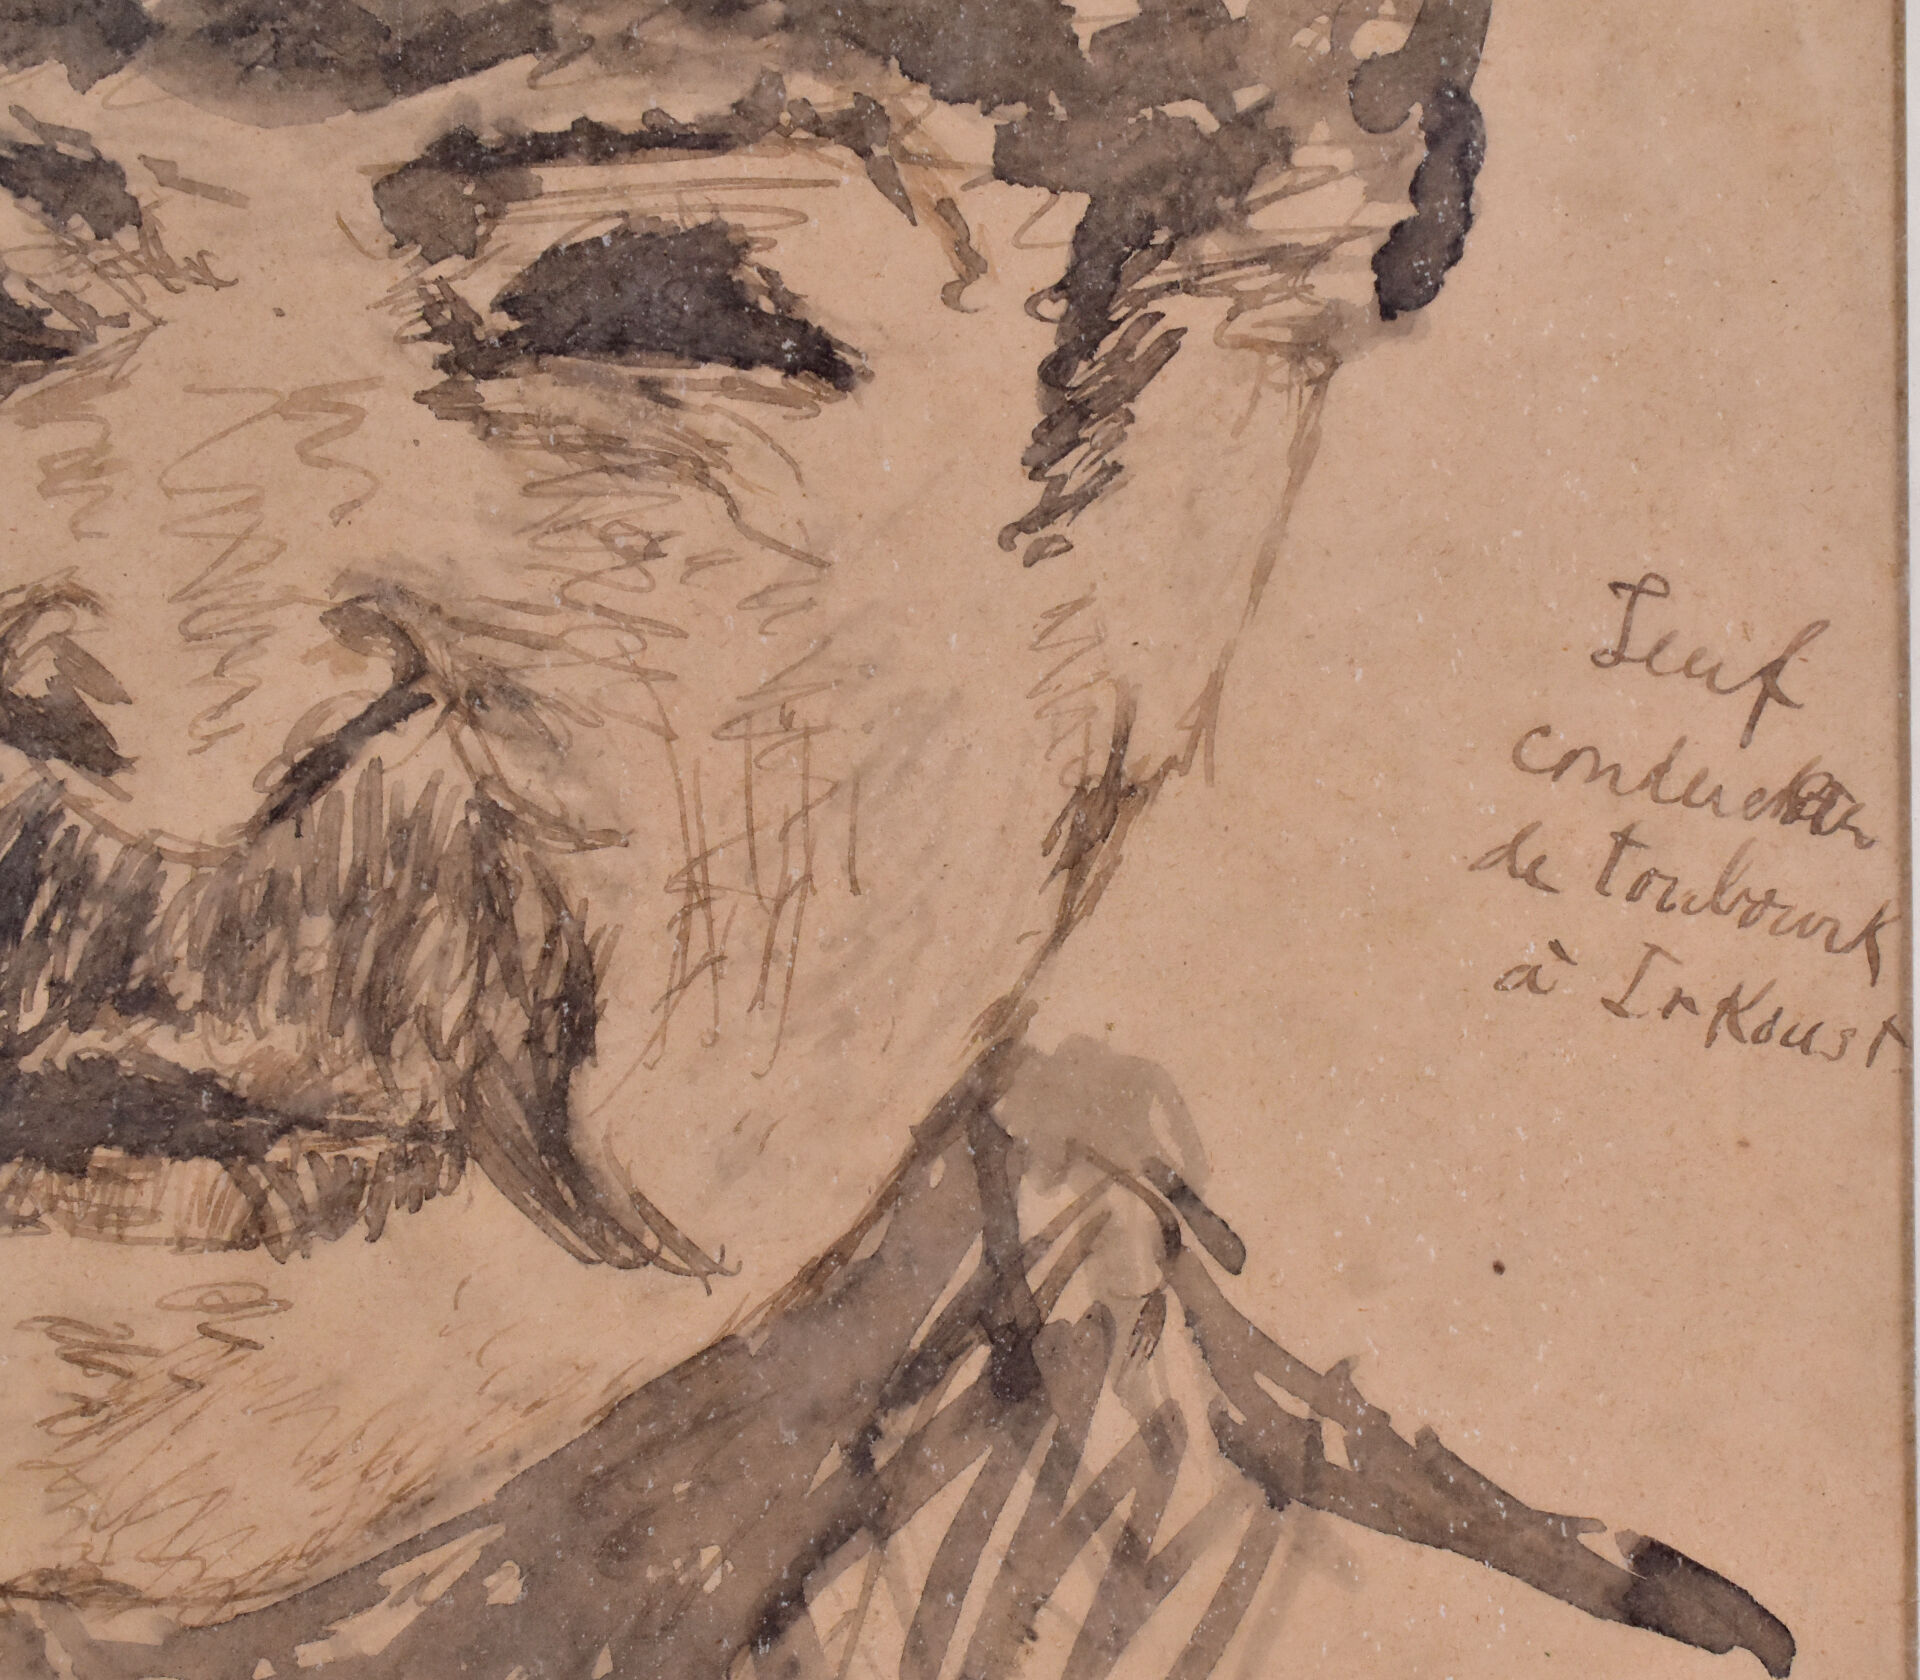 conducteur
de toubourk
à Irkoust